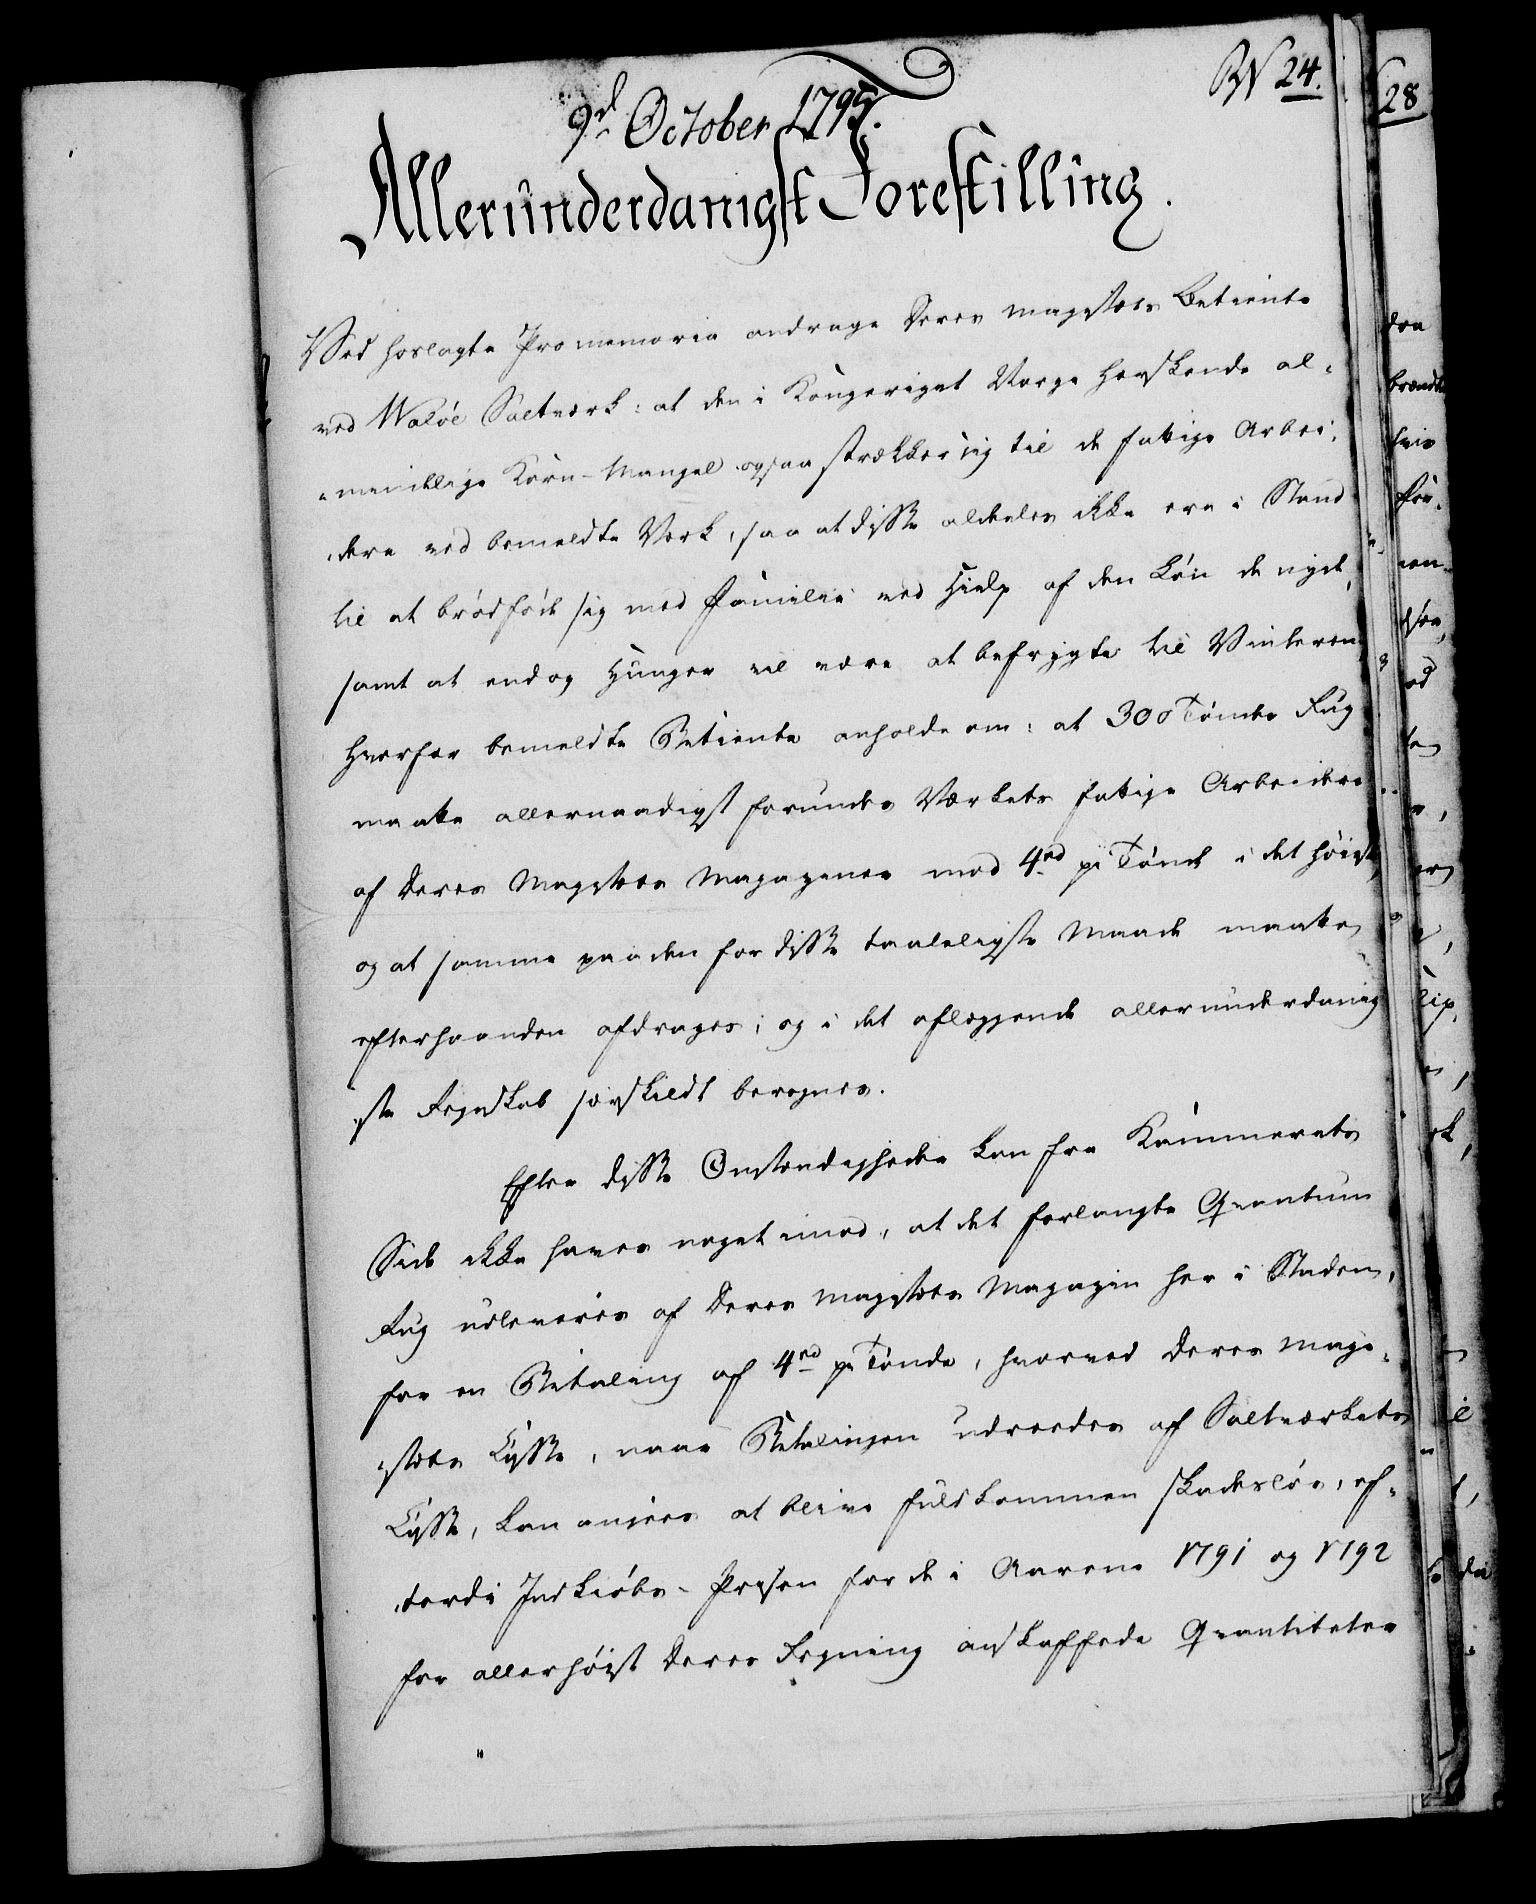 9d October 1795.
N 24.
Allerunderdanigst Forestilling.
Ved hoslagte Promemoria andrage Deres Majestæts Betiente
ved Waløe Saltværk: at den i Kongeriget Norge herskende al-
mindelige Korn-Mangel ogsaa strækker sig til de fattige Arbei-
dere ved bemeldte Verk, saa at disse aldeles ikke ere i Stand
til at brødføde sig med Familie ved Hielp af den Løn de nyde,
samt at endog Hunger vil være at befrygte til Vinteren,
hvorfor bemeldte Betiente anholde om: at 300 Tønder Rug
maatte allernaadigst forundes Værkets fattige Arbeidere
af Deres Majestæts Magaziner mod 4rd pr Tønde i det høieste,
og at samme paa den for disse taaleligste Maade maatte
efterhaanden afdrages; og i det aflæggende allerunderdanig-
ste Regnskab særskildt beregnes.
Efter disse Omstændigheder kan fra Kammerets
Side ikke haves noget imod, at det forlangte Qvantum
Rug udleveres af Deres Majestæts Magazin her i Staden,
for en Betaling af 4rd pr Tønde, hvorved Deres Maje-
stæts Casse, naar Betalingen udredes af Saltværkets
Casse, kan ansees at blive fuldkommen skadesløs, ef-
terdi Indkiøbs-Prisen for de i Aarene 1791 og 1792
for allerhøist Deres Regning anskaffede Qvantiteter
28